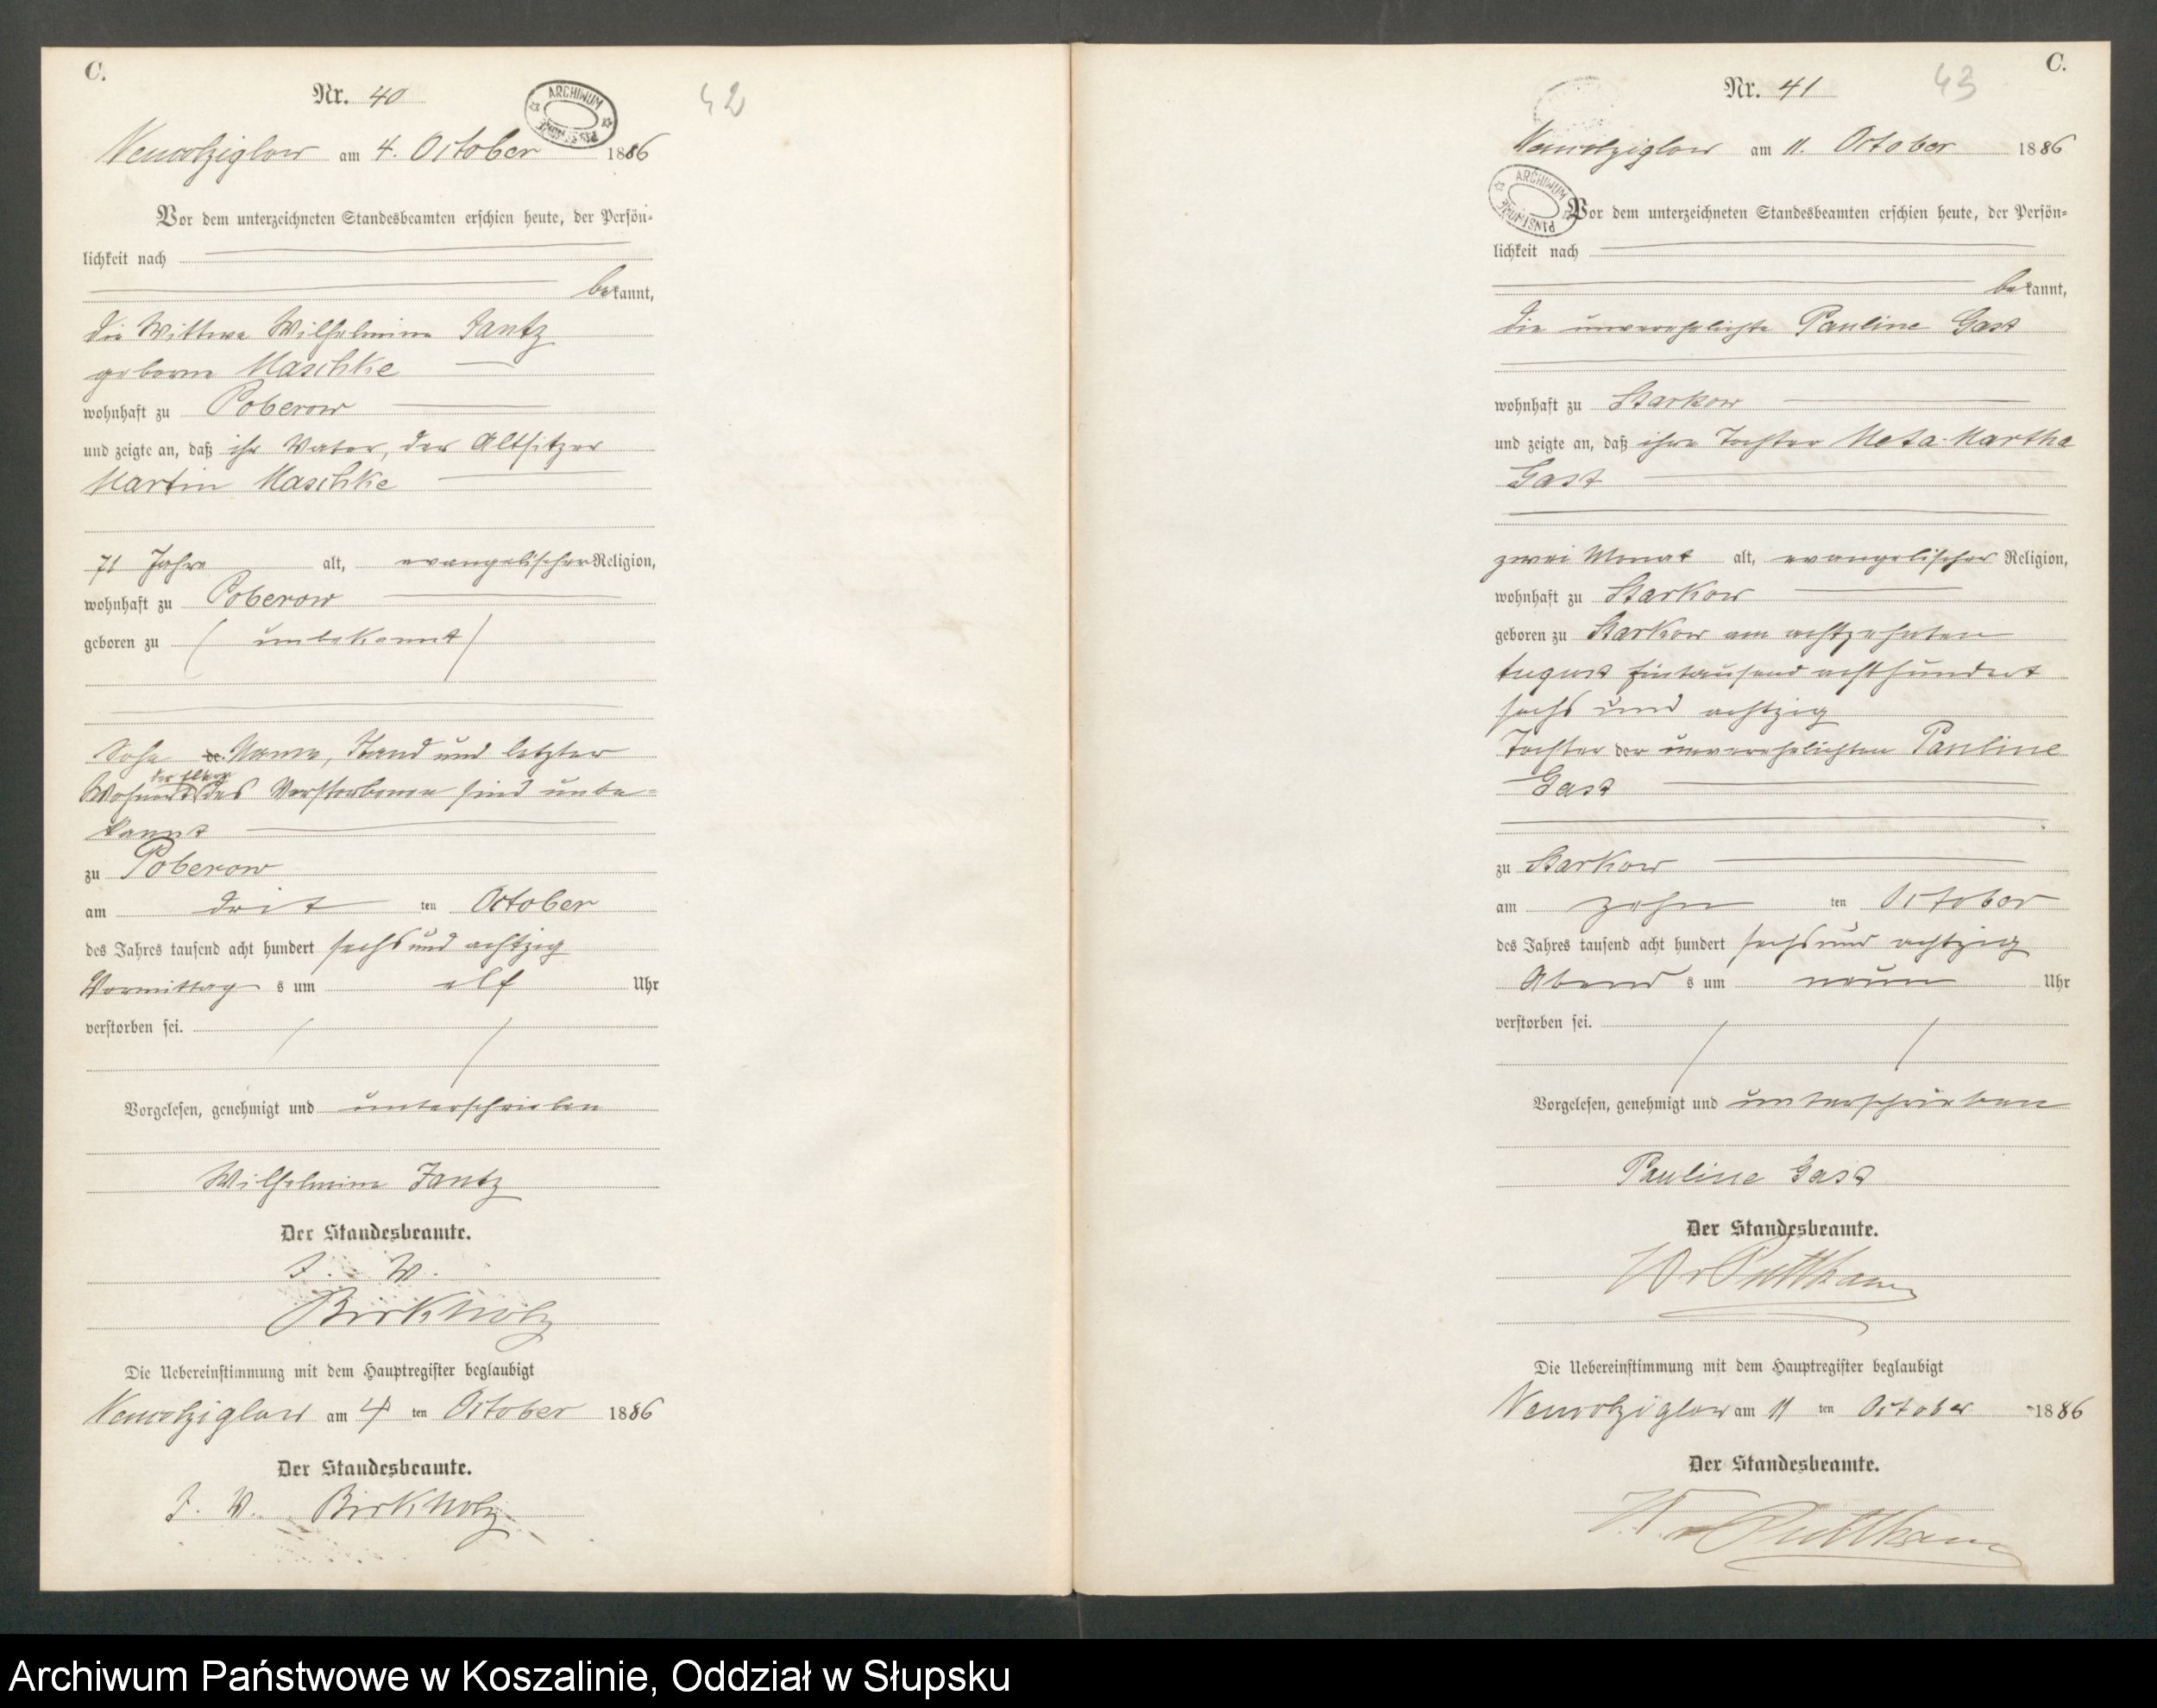 C.
Nr. 40
ARCHIWUM
42
Neuwolziglow am 4. October 1886
Vor dem unterzeichneten Standesbeamten erschien heute, der Persön-
lichkeit nach
bekannt,
die Wittwe Wilhelmine Jantz
geborne Maschke
wohnhaft zu Poberow
und zeigte an, daß ihr Vater, der Altsitzer
Martin Maschke
71 Jahre alt, evangelischer Religion,
wohnhaft zu Poberow
geboren zu (unbekannt)
Sohn Name, Stand und letzter
der Eltern
Wohnort des Verstorbenen sind unbe-
kannt
zu Poberow
am dritten October
des Jahres tausend acht hundert sechs und achtzig
Vormittags um elf Uhr
verstorben sei.
Vorgelesen, genehmigt und unterschrieben
Wilhelmine Jantz
Der Standesbeamte.
J. V.
Birkholz
Die Uebereinstimmung mit dem Hauptregister beglaubigt
Neuwolziglow am 4 ten October 1886
Der Standesbeamte.
J. V. Birkholz
C.
Nr. 41
43
Neuwolziglow am 11. October 1886
ARCHIWUM PAŃSTWOWE
Vor dem unterzeichneten Standesbeamten erschien heute, der Persön-
lichkeit nach
bekannt,
die unverehelichte Pauline Gast
wohnhaft zu Starkow
und zeigte an, daß ihre Tochter Meta Martha
Gast
zwei Monat alt, evangelischer Religion,
wohnhaft zu Starkow
geboren zu Starkow am achtzehnten
August Eintausend achthundert
sechs und achtzig
Tochter der unverehelichten Pauline
Gast
zu Starkow
am zehn ten October
des Jahres tausend acht hundert sechs und achtzig
Abends um neun Uhr
verstorben sei.
Vorgelesen, genehmigt und unterschrieben
Pauline Gast
Der Standesbeamte.
Die Uebereinstimmung mit dem Hauptregister beglaubigt
Neuwolziglow am 11 ten October 1886
Der Standesbeamte.
Archiwum Państwowe w Koszalinie, Oddział w Słupsku